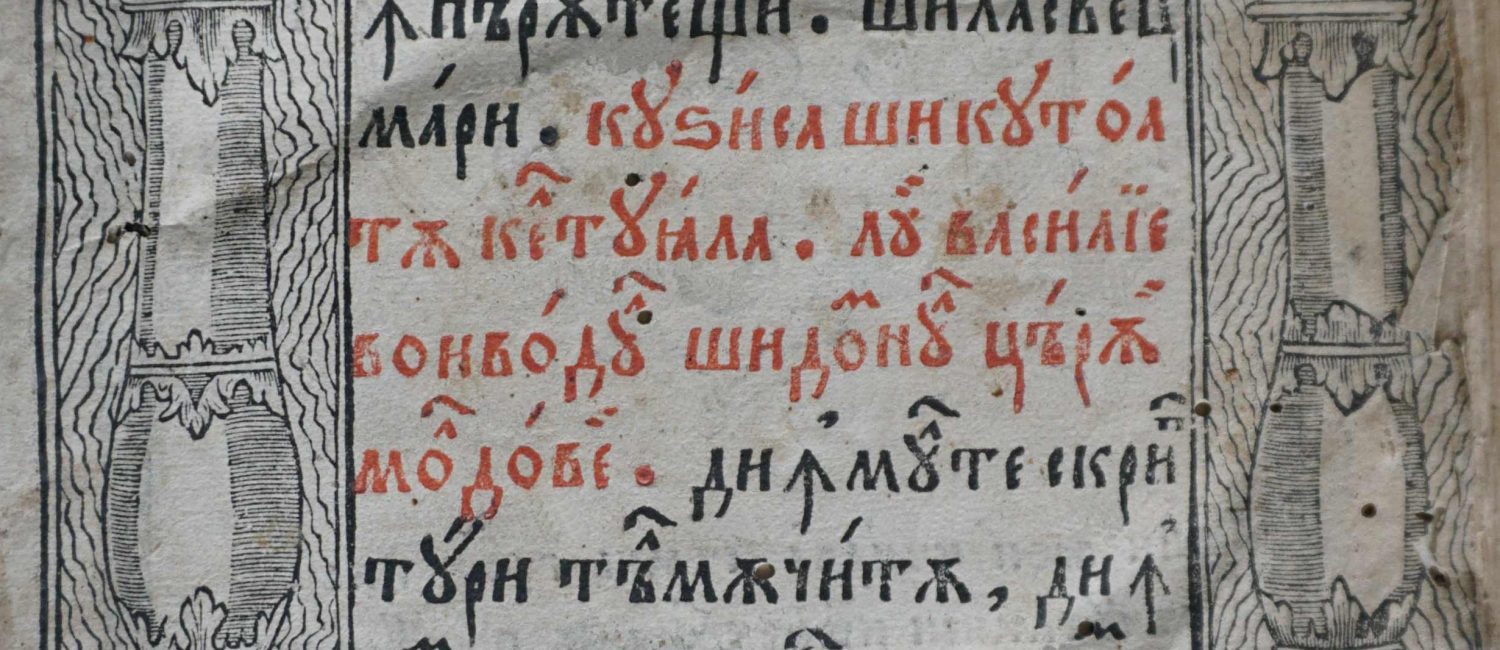 ꙟпърѫтещи . шиласвец
ма́ри . кꙋѕи́са шикꙋто́а
тѫ кеⷧтꙋꙗ́ла . лꙋ̆ васи́лїе
воиво́дꙋⷧ шидоⷨнꙋⷧ цъ́рѫ̆
моⷧдо́вӗ . диꙟ́ мꙋⷧте скриⷫ
тꙋ́ри тъⷧмѫчи́тѫ, диꙟ́